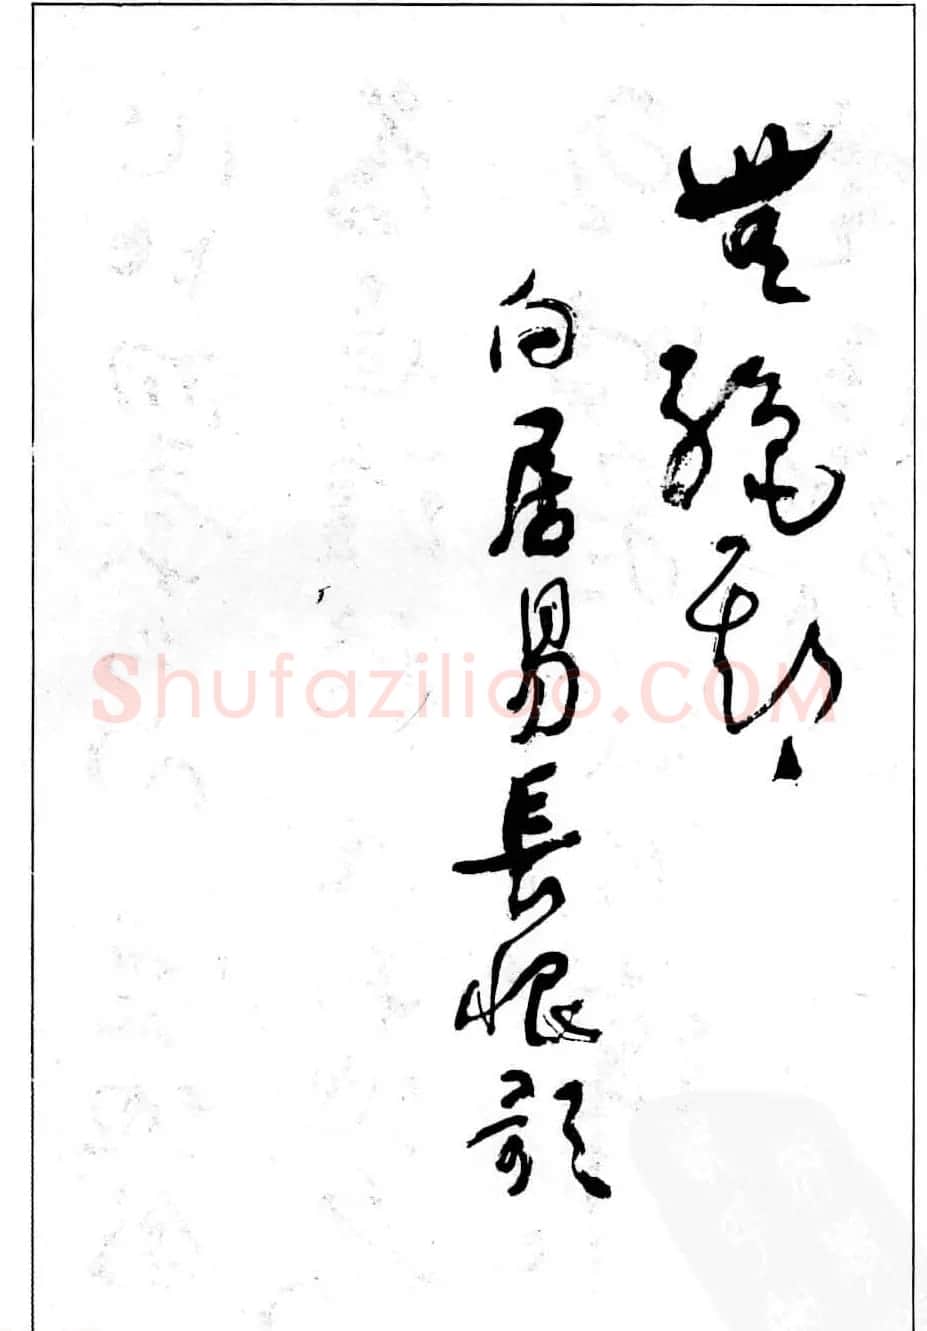 無絕期
白居易長恨歌
Shufaziliao.COM